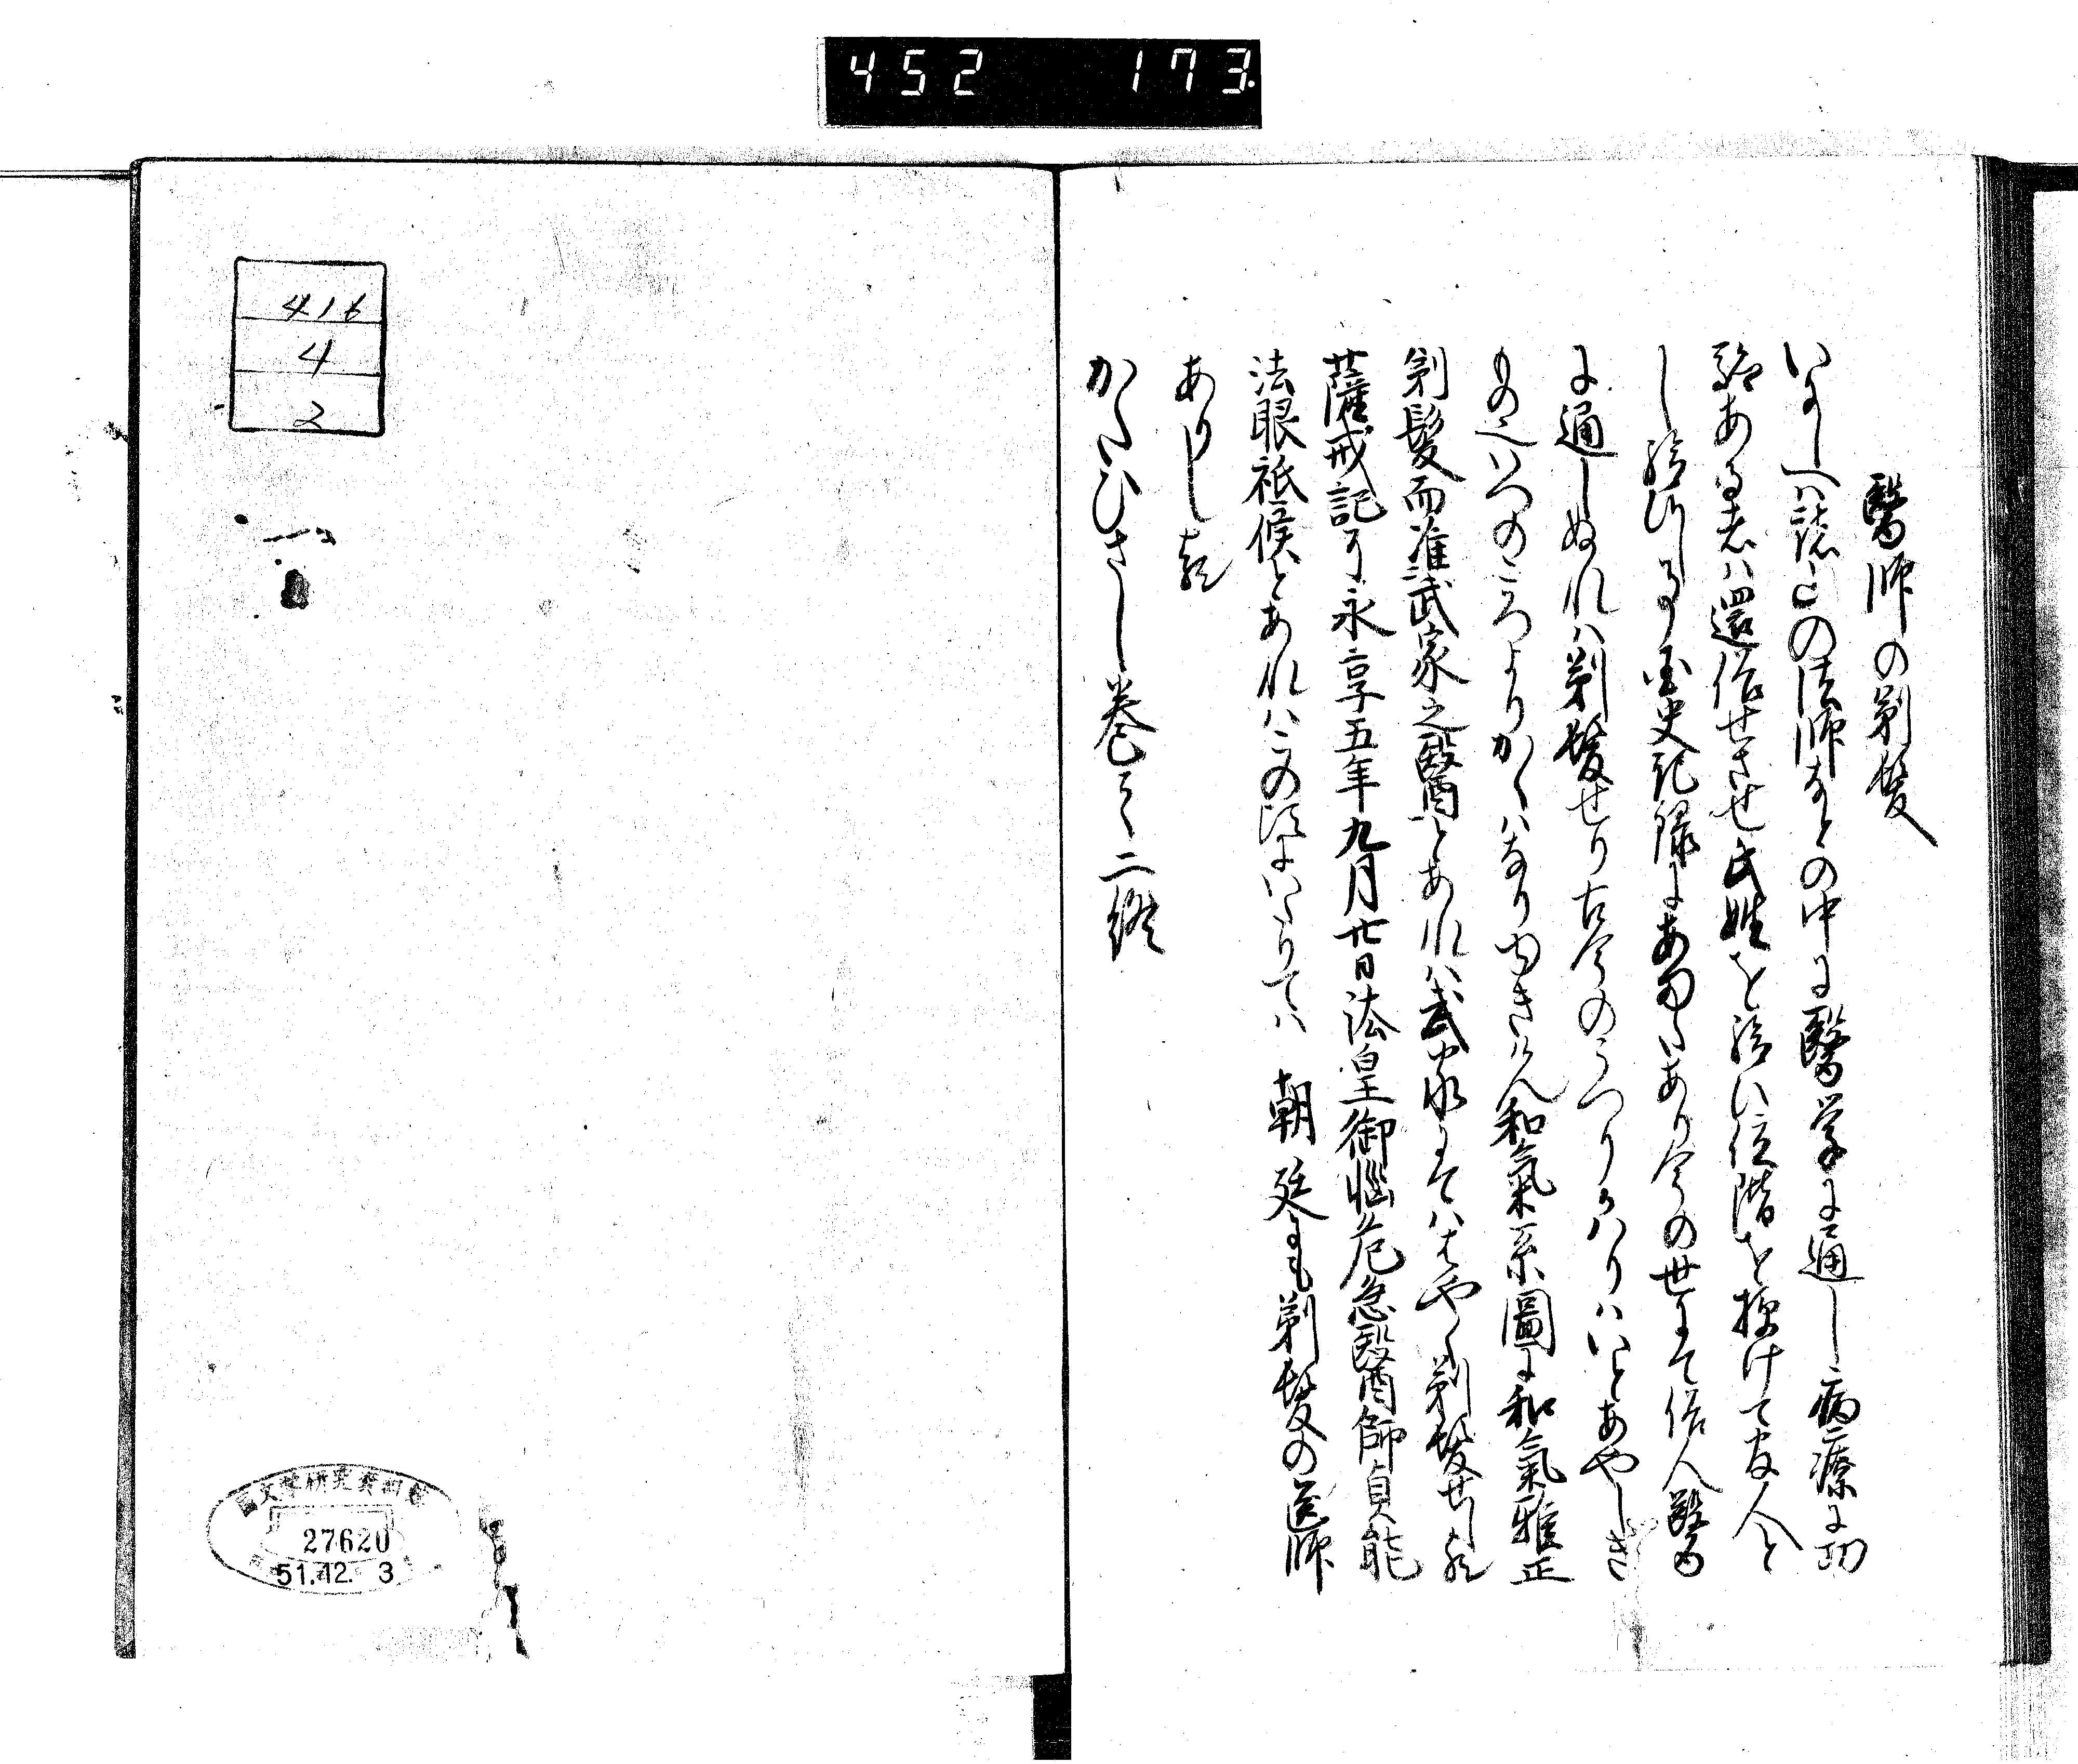 452 173.
醫師の剃髮
いにしへは諸との法師なとの中に醫学に通し病療に功
驗ある者は還俗せさせ氏姓を給ひ位階を授けて官人と
し給ひし事国史記録にあまたあり今の世にて俗人醫
に通しぬれは剃髮せり古今のうつりかはりはいとあやしき
もの也いつのころよりかくはなりゆきけん和氣系圖に和氣雅正
剃髮而准武家之醫とあれは武家にてははやく剃髮せし也
薩戒記に永享五年九月廿日法皇御惱危急醫師貞能
法眼祗候とあれはこの頃にいたりては 朝廷にも剃髮の医師
ありし也
かたひさし巻之二終
416
4
2
27620
51.12. 3